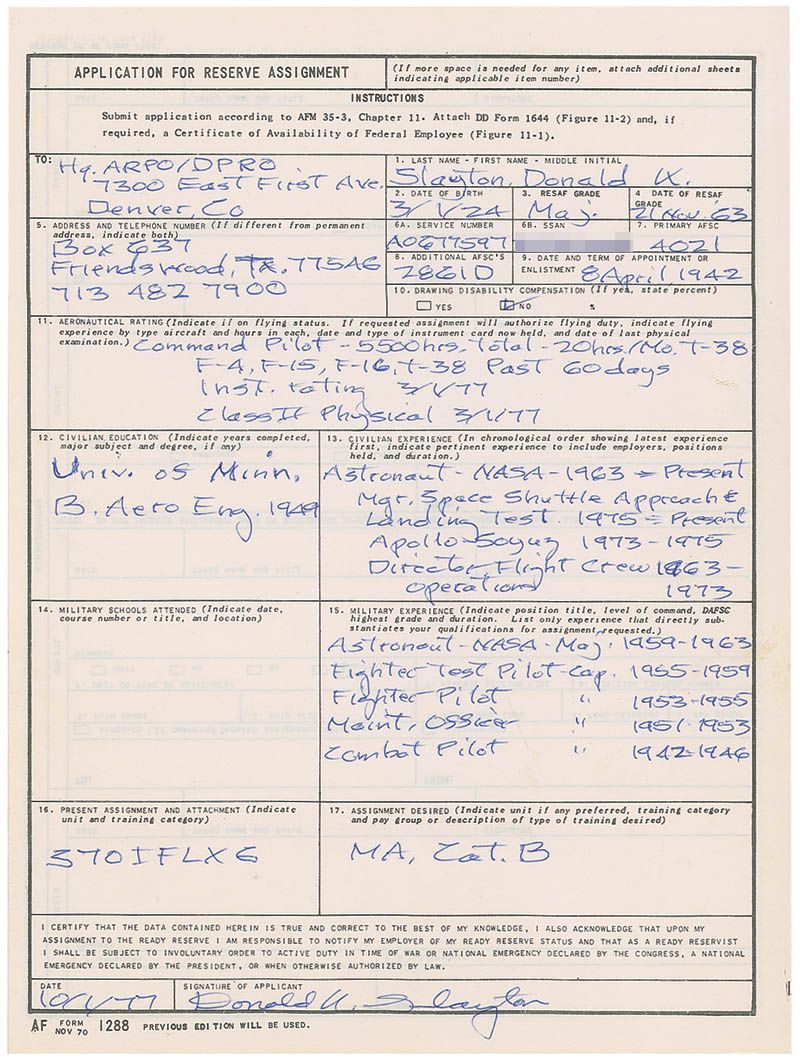 APPLICATION FOR RESERVE ASSIGNMENT
(If more space is needed for any item, attach additional sheets
indicating applicable item number)
INSTRUCTIONS
Submit application according to AFM 35-3, Chapter 11. Attach DD Form 1644 (Figure 11-2) and, if
required, a Certificate of Availability of Federal Employee (Figure 11-1).
TO: Hq. ARPO/DPRO
7300 East First Ave.
Denver, Co
1. LAST NAME - FIRST NAME - MIDDLE INITIAL
Slayton, Donald K.
2. DATE OF BIRTH
3/1/24
3. RESAF GRADE
Maj.
4 DATE OF RESAF
GRADE
21 Nov. 63
5. ADDRESS AND TELEPHONE NUMBER (If different from permanent
address, indicate both)
Box 637
Friendswood, Tx. 77546
713 482 7900
6A. SERVICE NUMBER
AO677597
6B. SSAN
7. PRIMARY AFSC
4021
8. ADDITIONAL AFSC'S
2861D
9. DATE AND TERM OF APPOINTMENT OR
ENLISTMENT 8 April, 1942
10. DRAWING DISABILITY COMPENSATION (If yes, state percent)
YES NO %
11. AERONAUTICAL RATING (Indicate if on flying status. If requested assignment will authorize flying duty, indicate flying
experience by type aircraft and hours in each, date and type of instrument card now held, and date of last physical
examination.) Command Pilot - 5500 hrs. Total - 20 hrs./Mo. T-38
F-4, F-15, F-16, T-38 Past 60 days
Inst. rating 3/1/77
Class II Physical 3/1/77
12. CIVILIAN EDUCATION (Indicate years completed,
major subject and degree, if any)
Univ. of Minn.
B. Aero Eng. 1949
13. CIVILIAN EXPERIENCE (In chronological order showing latest experience
first, indicate pertinent experience to include employers, positions
held, and duration.)
Astronaut - NASA - 1963 - Present
Mgr. Space Shuttle Approach &
Landing Test 1975 - Present
Apollo-Soyuz 1973 - 1975
Director, Flight Crew 1963 -
Operations 1973
14. MILITARY SCHOOLS ATTENDED (Indicate date,
course number or title, and location)
15. MILITARY EXPERIENCE (Indicate position title, level of command, DAFSC
highest grade and duration. List only experience that directly sub-
stantiates your qualifications for assignment requested.)
Astronaut - NASA - Maj. 1959-1963
Fighter Test Pilot - Cap. 1955-1959
Fighter Pilot " 1953-1955
Maint. Officer " 1951-1953
Combat Pilot " 1942-1946
16. PRESENT ASSIGNMENT AND ATTACHMENT (Indicate
unit and training category)
370IFLX6
17. ASSIGNMENT DESIRED (Indicate unit if any preferred, training category
and pay group or description of type of training desired)
MA, Cat. B
I CERTIFY THAT THE DATA CONTAINED HEREIN IS TRUE AND CORRECT TO THE BEST OF MY KNOWLEDGE, I ALSO ACKNOWLEDGE THAT UPON MY
ASSIGNMENT TO THE READY RESERVE I AM RESPONSIBLE TO NOTIFY MY EMPLOYER OF MY READY RESERVE STATUS AND THAT AS A READY RESERVIST
I SHALL BE SUBJECT TO INVOLUNTARY ORDER TO ACTIVE DUTY IN TIME OF WAR OR NATIONAL EMERGENCY DECLARED BY THE CONGRESS, A NATIONAL
EMERGENCY DECLARED BY THE PRESIDENT, OR WHEN OTHERWISE AUTHORIZED BY LAW.
DATE
10/1/77
SIGNATURE OF APPLICANT
Donald K. Slayton
AF FORM NOV 70 1288 PREVIOUS EDITION WILL BE USED.